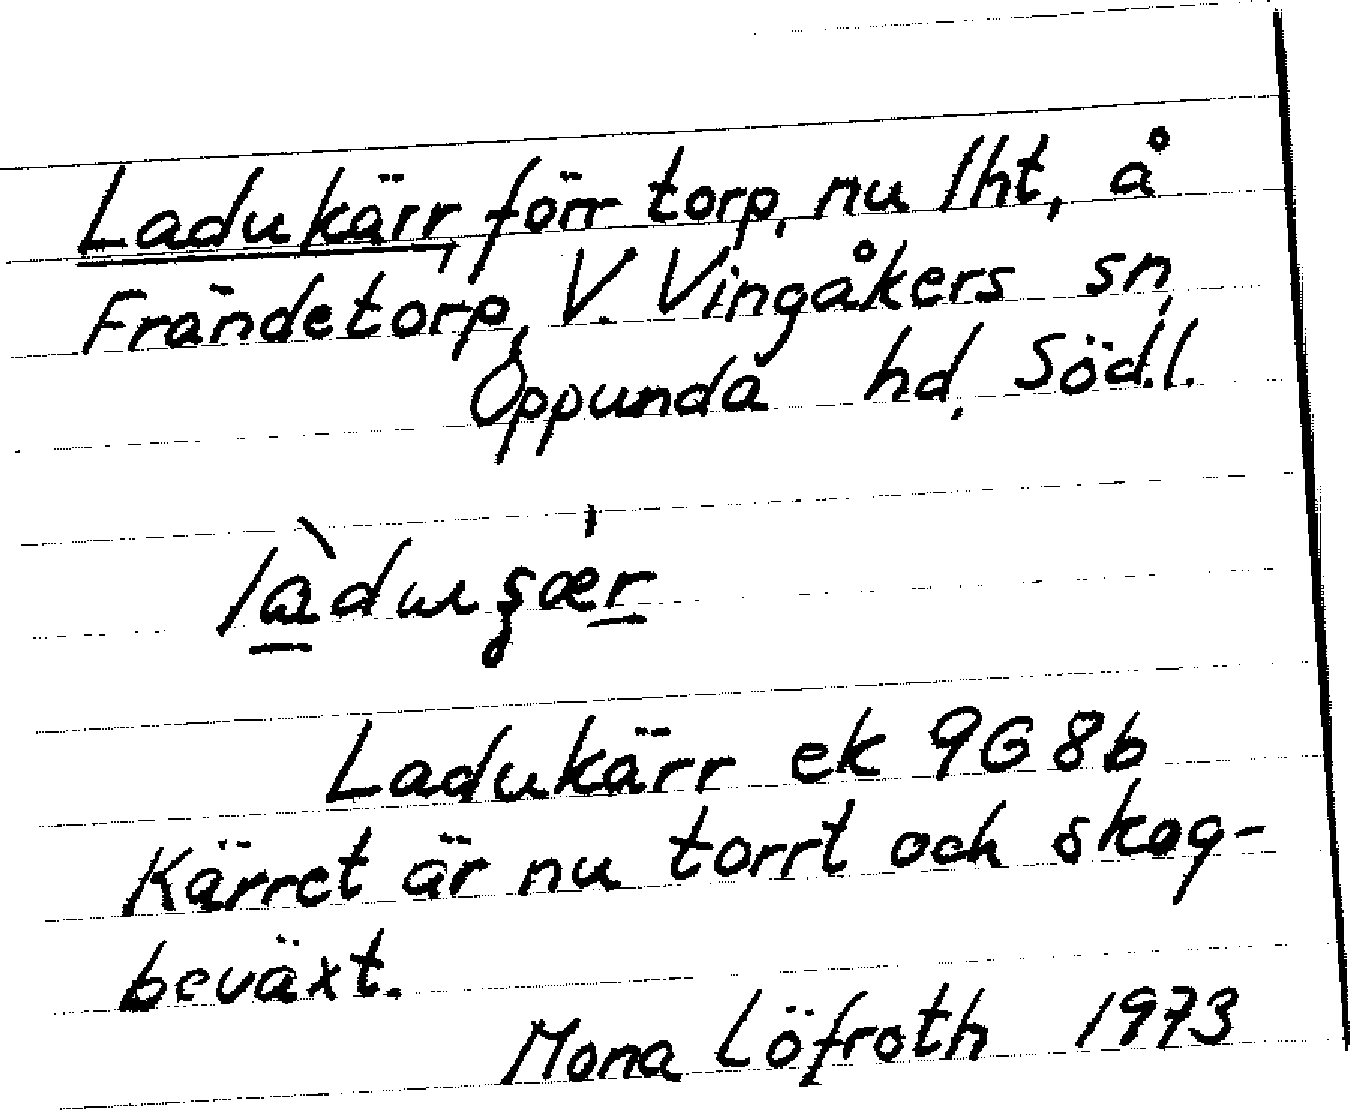 Ladukärr, förr torp, nu lht, å
Frändetorp, V. Vingåkers sn,
Oppunda hd, Söd.l.
Ladukärr ek 9G 8b
Kärret är nu torrt och skog-
beväxt.
Mona Löfroth 1973